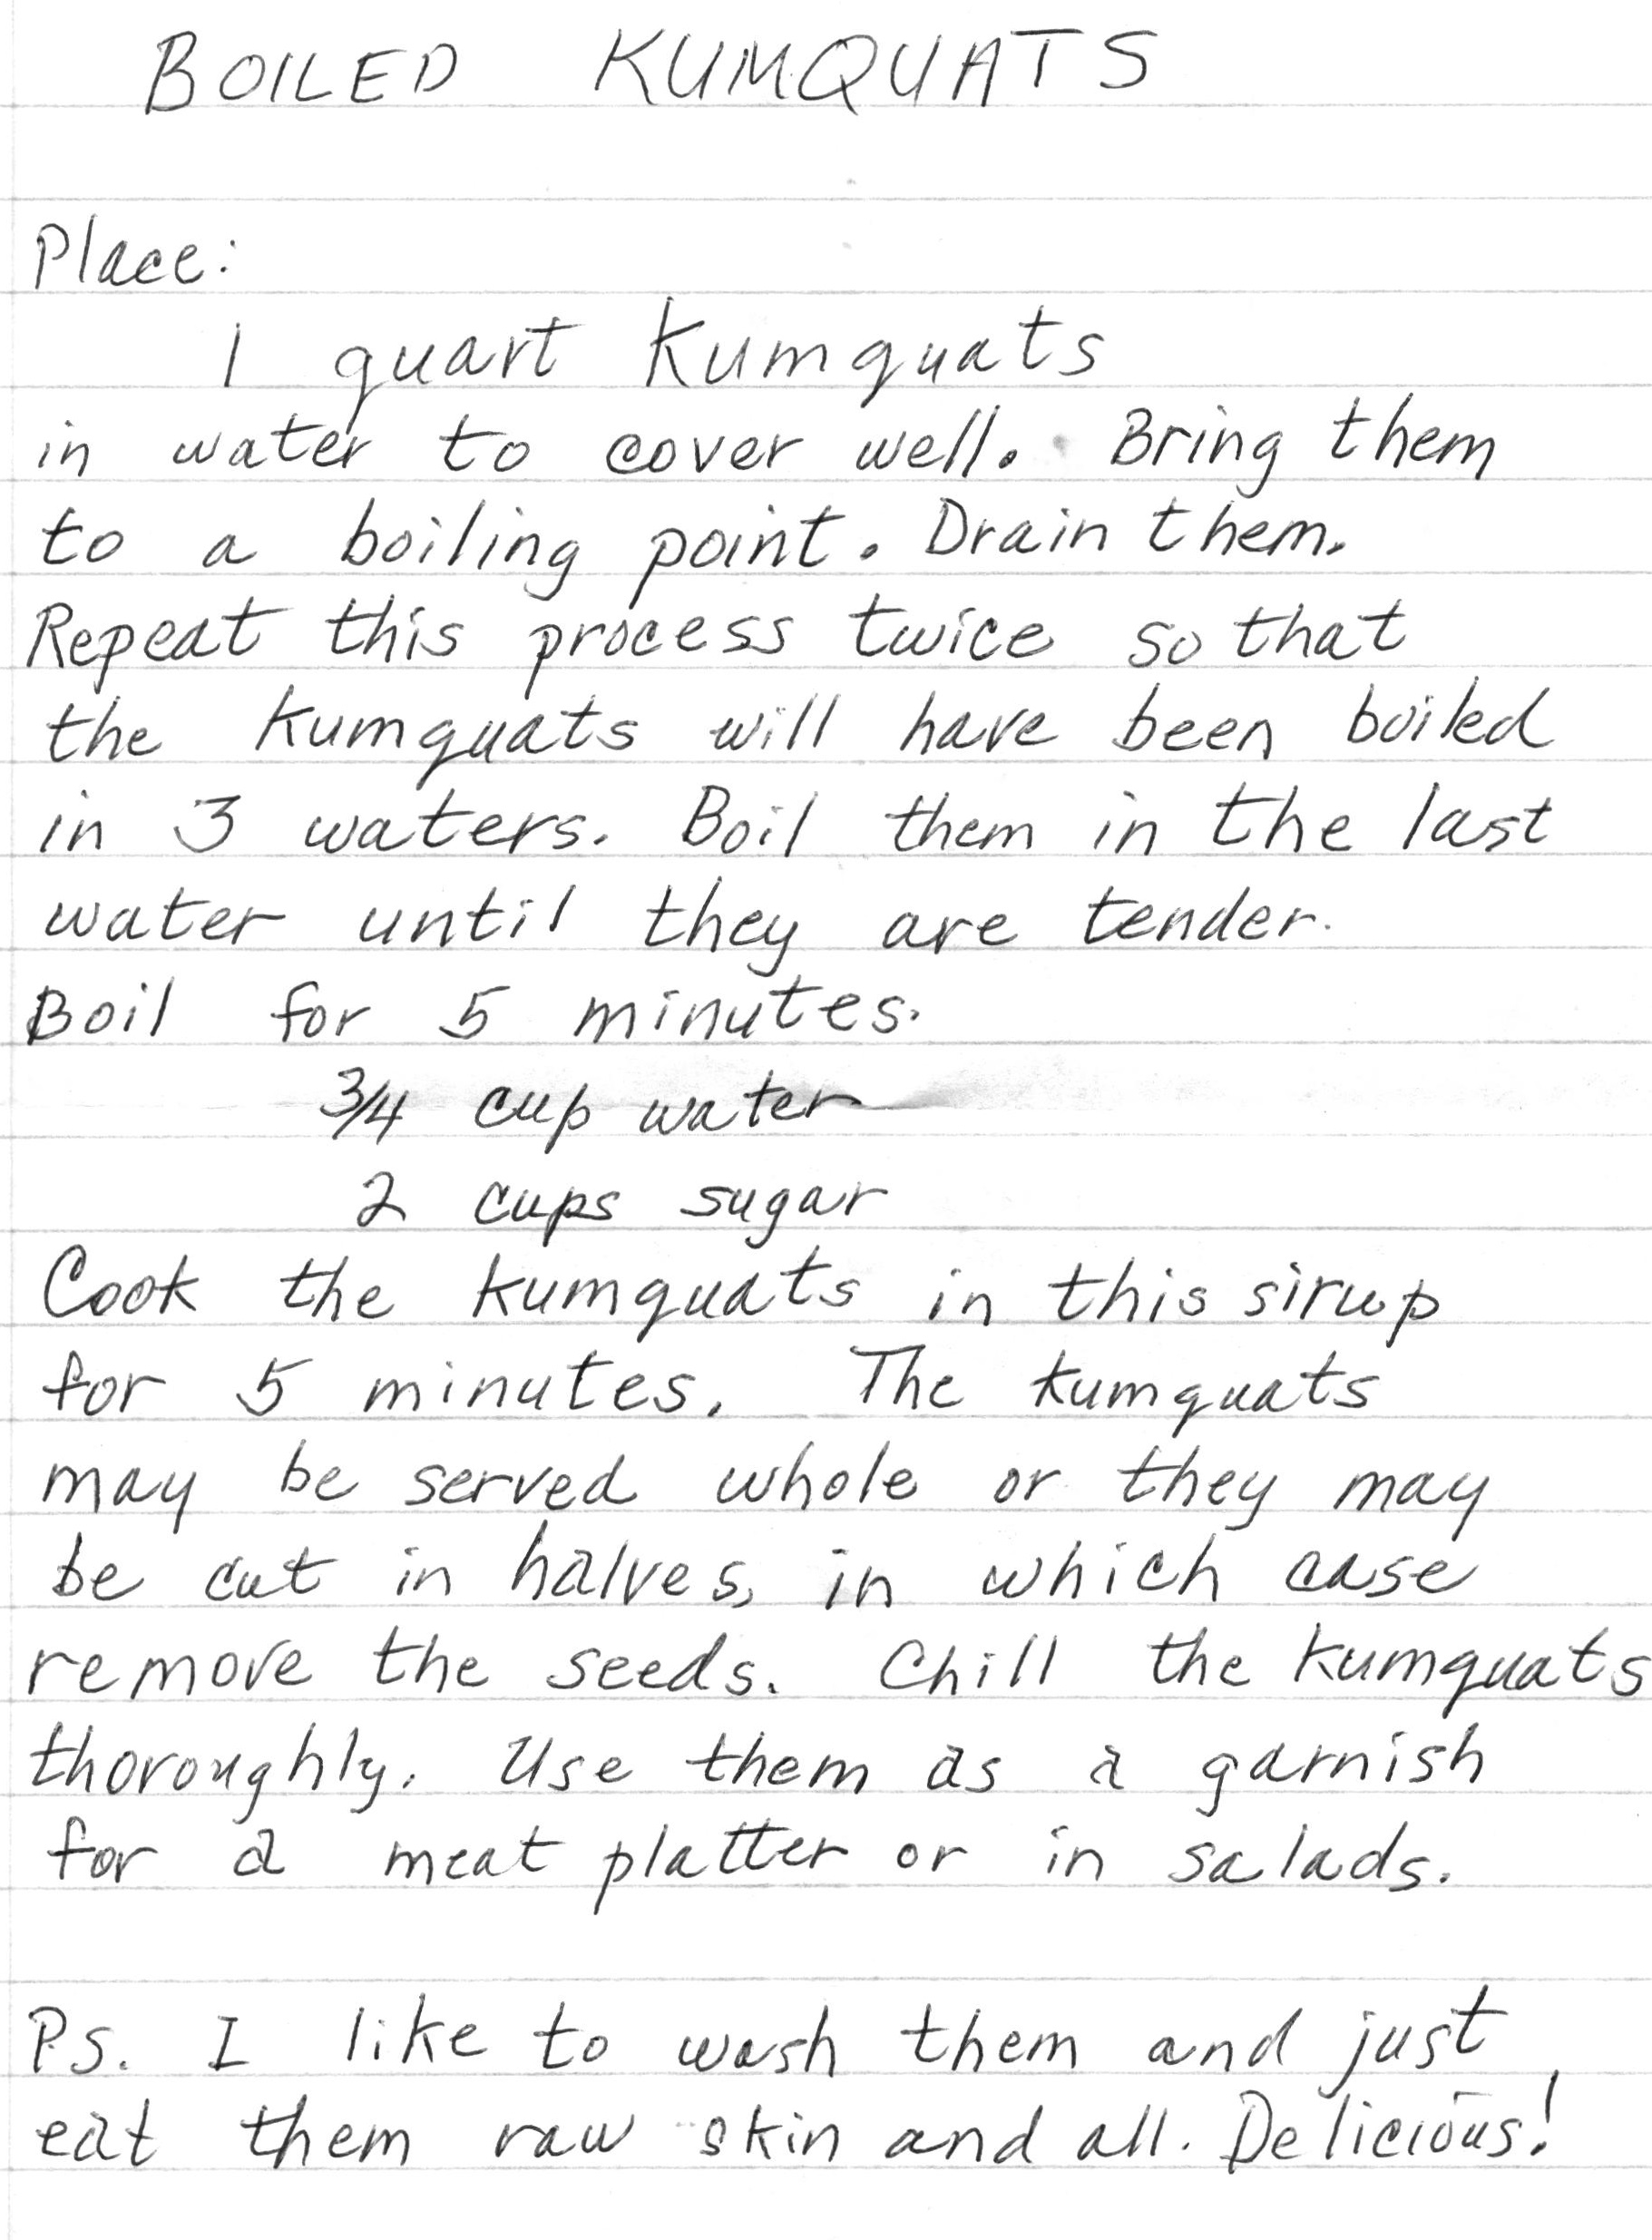 BOILED KUMQUATS
Place:
1 quart Kumquats
in water to cover well. Bring them
to a boiling point. Drain them.
Repeat this process twice so that
the kumquats will have been boiled
in 3 waters. Boil them in the last
water until they are tender.
Boil for 5 minutes.
3/4 cup water
2 cups sugar
Cook the kumquats in this sirup
for 5 minutes. The kumquats
may be served whole or they may
be cut in halves, in which case
remove the seeds. Chill the kumquats
thoroughly. Use them as a garnish
for a meat platter or in salads.
P.S. I like to wash them and just
eat them raw skin and all. Delicious!